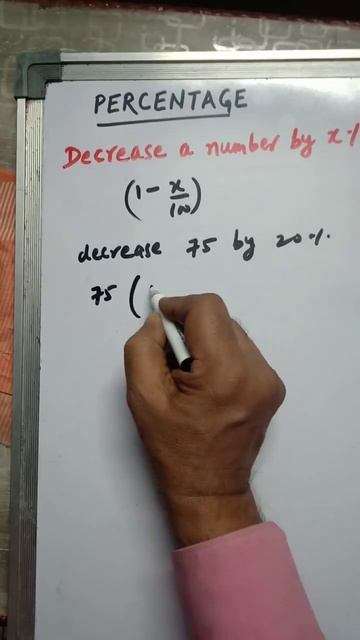 PERCENTAGE
Decrease a number by x%
(1 - x/100)
decrease 75 by 20%.
75 (